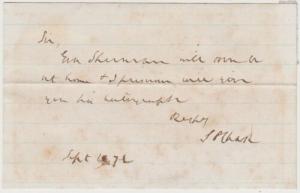 Sir,
Gen Sherman will soon be
at home & I presume will give
you his autograph
Respy
S P Chase
Sept 16 72